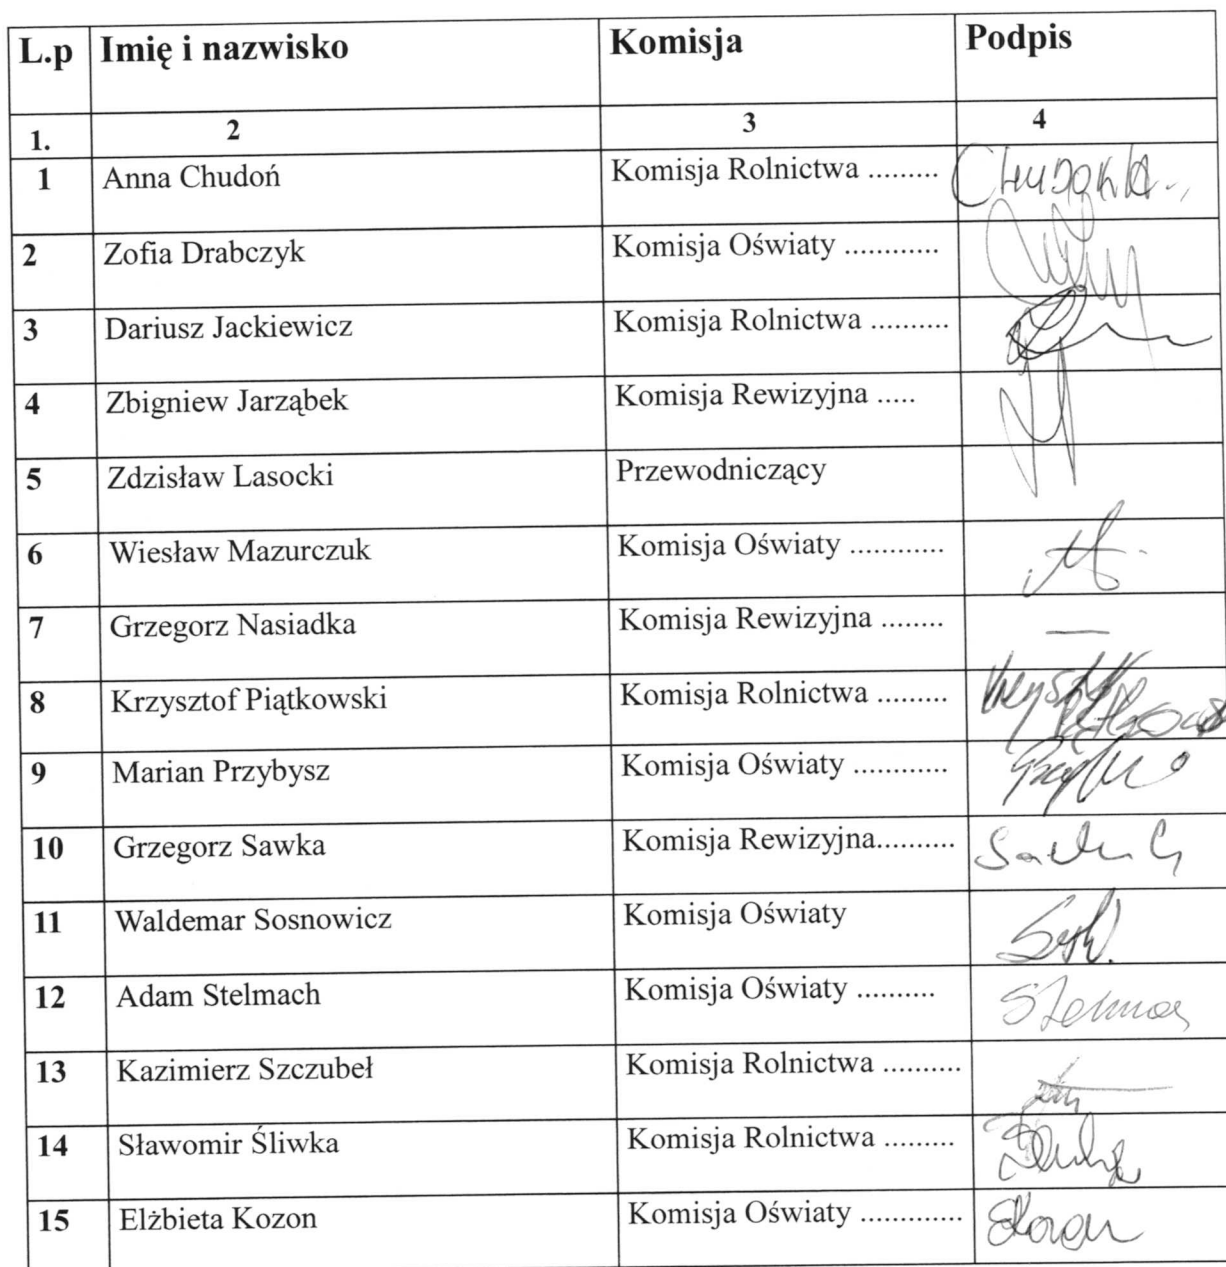 L.p Imię i nazwisko Komisja Podpis
1. 2 3 4
1 Anna Chudoń Komisja Rolnictwa .........
2 Zofia Drabczyk Komisja Oświaty ............
3 Dariusz Jackiewicz Komisja Rolnictwa ..........
4 Zbigniew Jarząbek Komisja Rewizyjna .....
5 Zdzisław Lasocki Przewodniczący
6 Wiesław Mazurczuk Komisja Oświaty ............
7 Grzegorz Nasiadka Komisja Rewizyjna ........ —
8 Krzysztof Piątkowski Komisja Rolnictwa .........
9 Marian Przybysz Komisja Oświaty ............
10 Grzegorz Sawka Komisja Rewizyjna..........
11 Waldemar Sosnowicz Komisja Oświaty
12 Adam Stelmach Komisja Oświaty ..........
13 Kazimierz Szczubeł Komisja Rolnictwa ..........
14 Sławomir Śliwka Komisja Rolnictwa .........
15 Elżbieta Kozon Komisja Oświaty .............